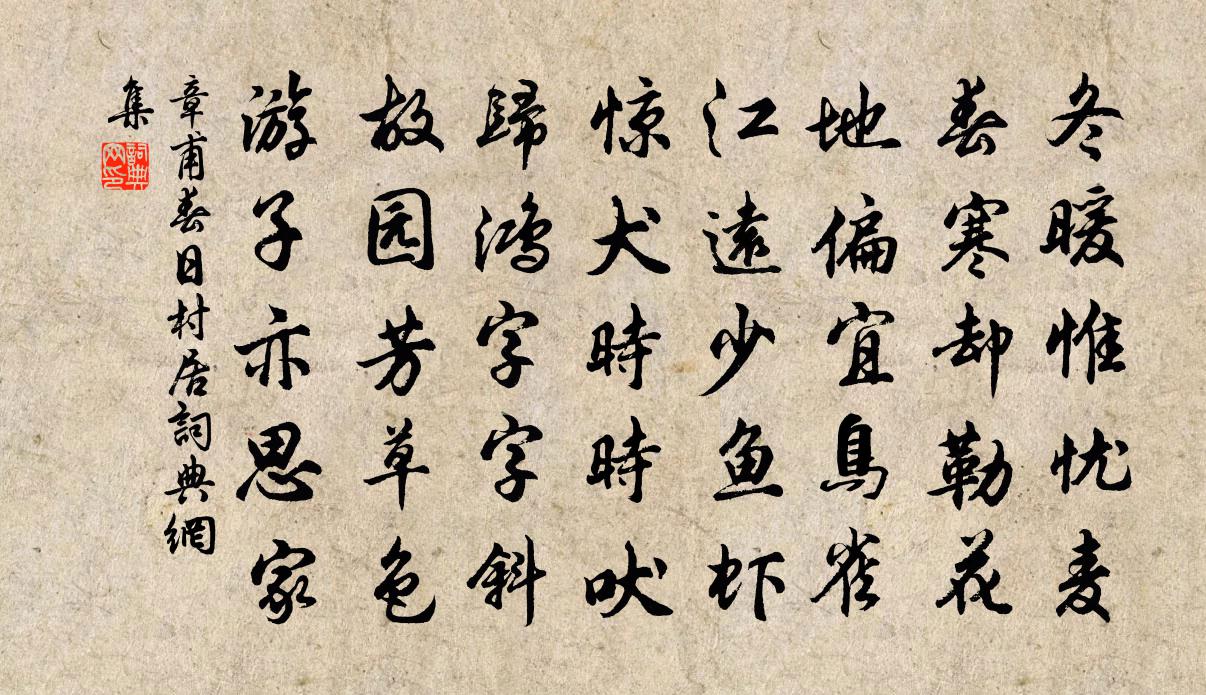 冬暖惟忧麦
春寒却勒花
地偏宜鳥雀
江遠少鱼虾
惊犬時時吠
歸鸿字字斜
故园芳草色
游子亦思家
章甫春日村居詞典網
集
詞典
网印